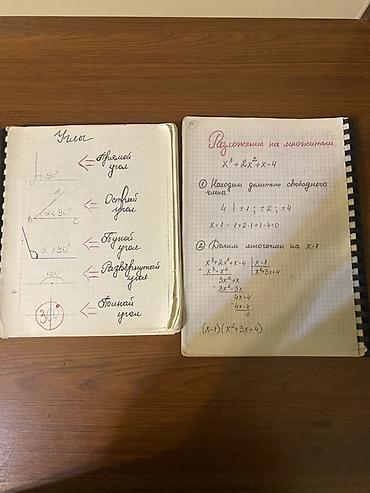 Углы
90°
Прямой
угол
B
α < 90°
C
Острый
угол
α > 90°
Тупой
угол
Развёрнутый
угол
360°
Полный
угол
Разложение на множители.
x³+2x²+x-4
① Находим делитель свободного
члена
4 | ±1; ±2; ±4
x=1 = 1+2·1+1-4=0
② Делим многочлен на x-1
x³+2x²+x-4 | x-1
- x³-x² x²+3x+4
3x²+x
- 3x²-3x
4x-4
- 4x-4
0
(x-1)(x²+3x+4)